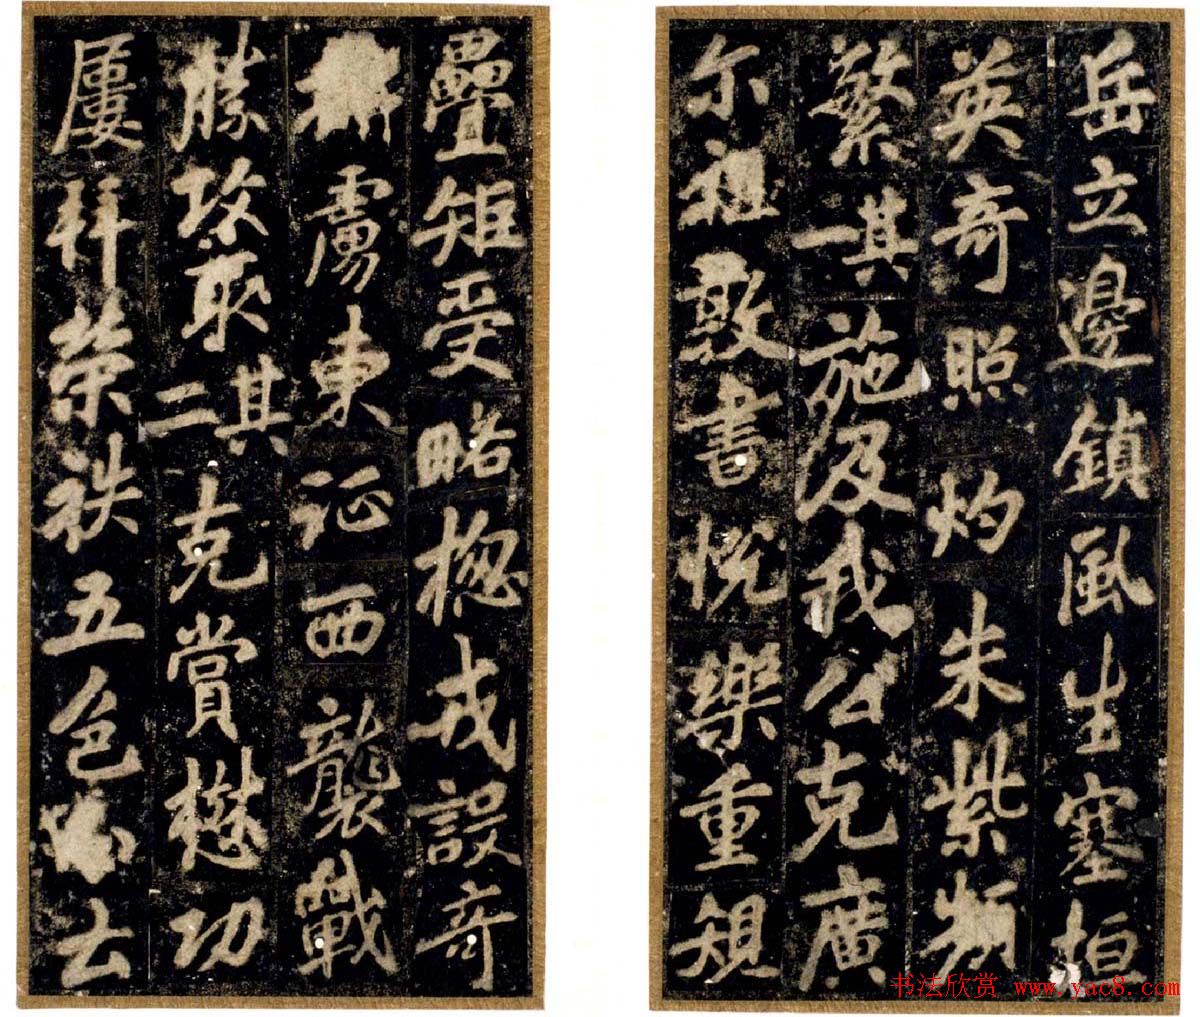 岳立邊鎮風生塞垣
英奇照灼朱紫頻
繁其一施及我公克廣
尔祖敦書悦樂重規
疊矩受略揔戎設奇
虜東征西襲戰
勝攻取其二克賞懋功
屢拜榮秩五色去
书法欣赏 www.yac8.com